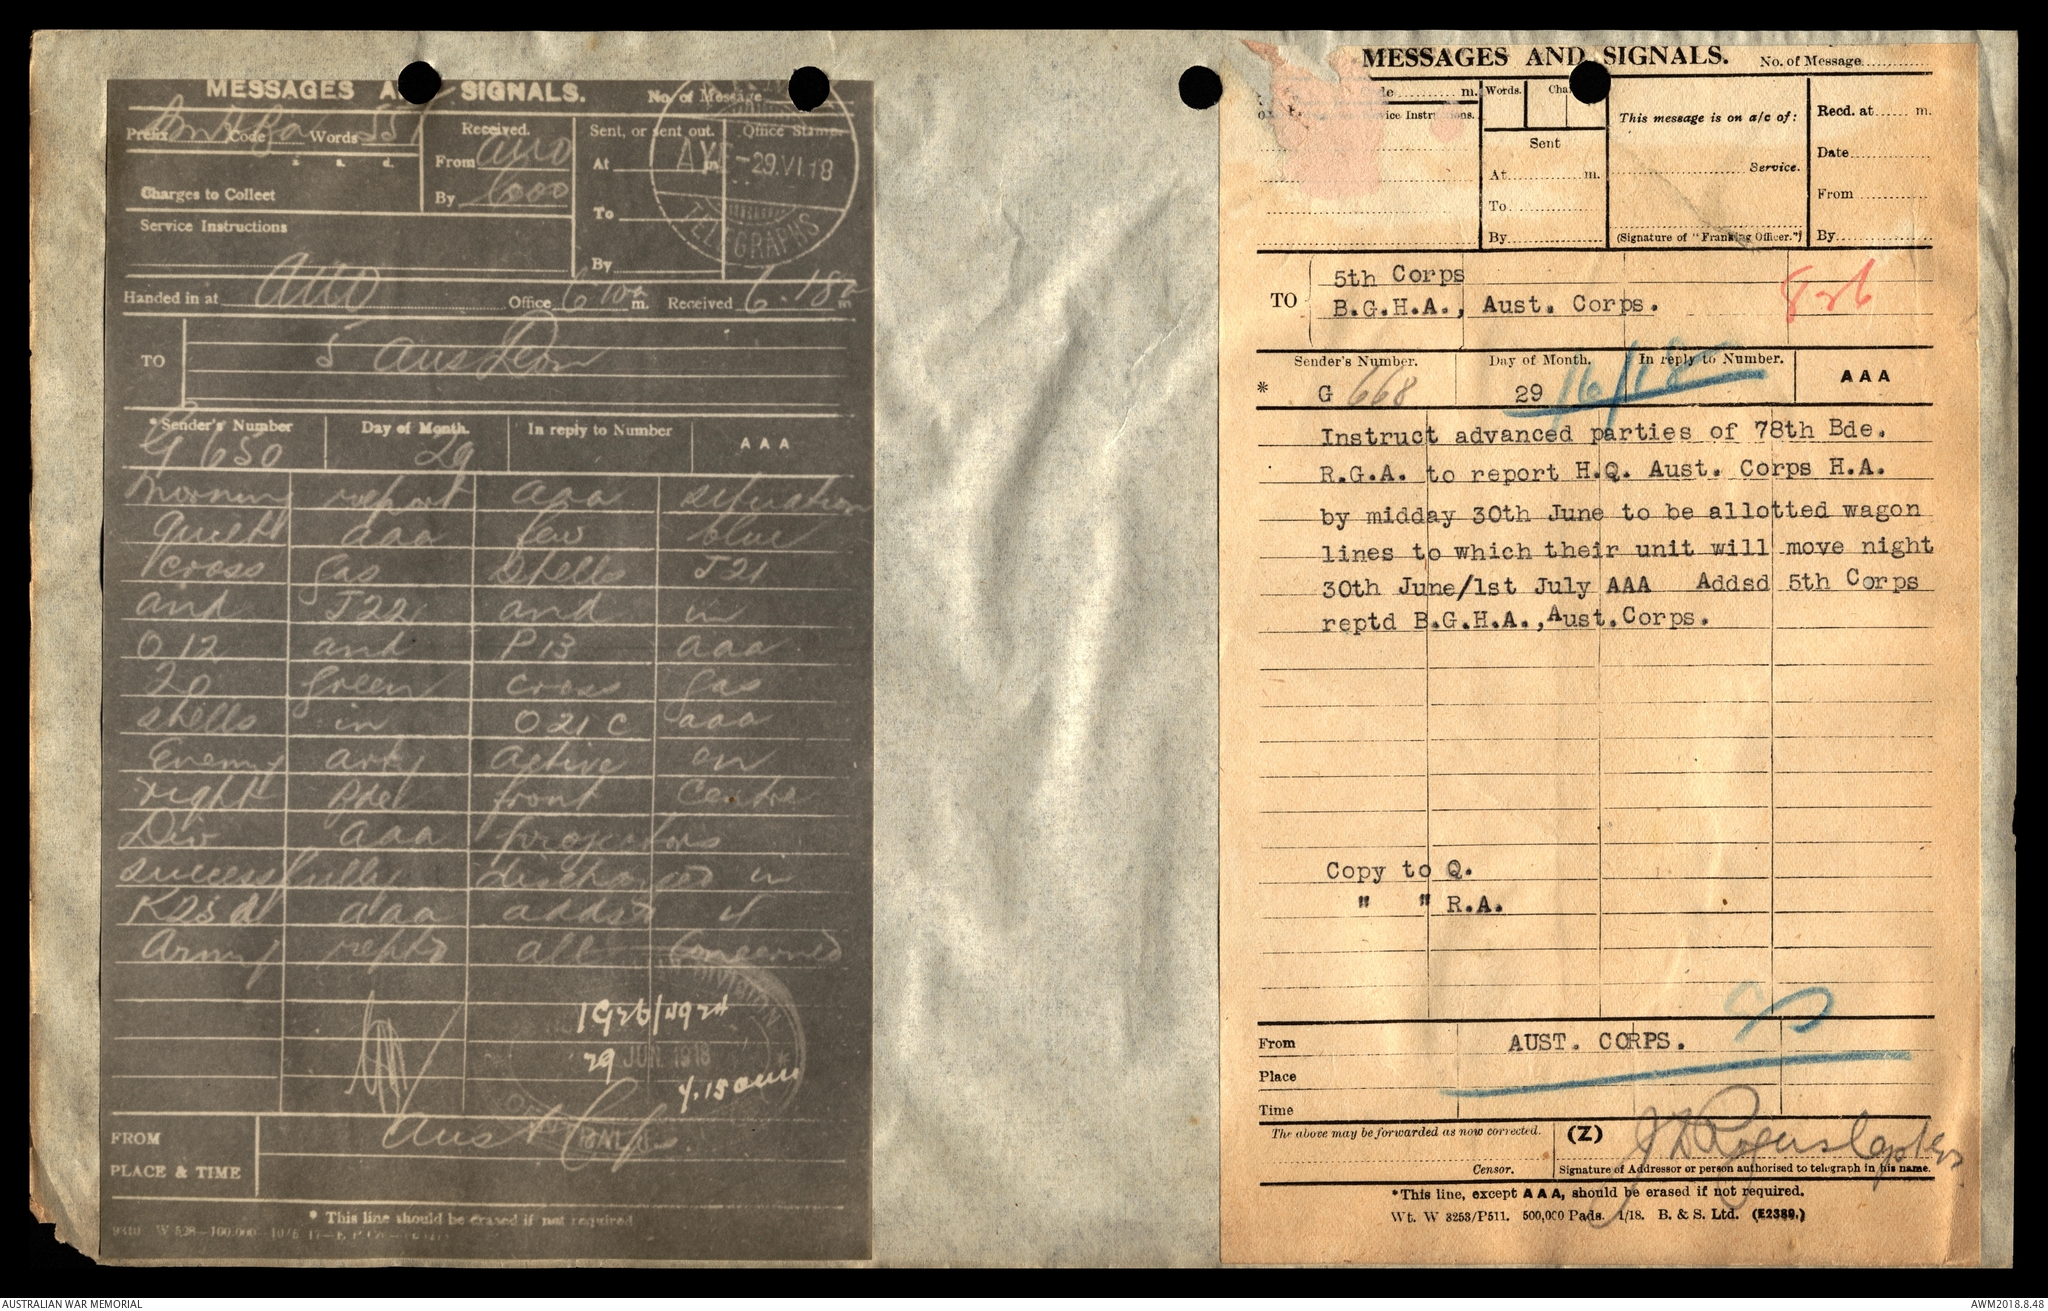 MESSAGES AND SIGNALS.
No. of Message
Prefix Code Words 55
Received.
Sent, or sent out.
Office Stamp.
From
At m
29.VI.18
TELEGRAPHS
£ s. d.
Charges to Collect
By
To
Service Instructions
By
Handed in at Office 6 10a m. Received 6.18a m
TO
5 Aus Div
*Sender's Number
Day of Month.
In reply to Number
AAA
G 650
29
morning report aaa situation
quiet aaa few blue
cross gas shells J21
and J22 and in
O 12 and P13 aaa
20 green cross gas
shells in O21C aaa
Enemy arty active on
right Bde front Centre
Div aaa projectors
successfully discharged in
K23d aaa addsd 4
Army reptd all concerned
DIVISION
29 JUN. 1918
7.15am
FROM
Aust Corps.
PLACE & TIME
* This line should be erased if not required
MESSAGES AND SIGNALS.
No. of Message
Code m.
Words.
Service Instructions.
This message is on a/c of:
Recd. at m.
Sent
Date
At m.
Service.
From
To
By
(Signature of "Franking Officer.")
By
TO
5th Corps
B.G.H.A., Aust. Corps.
Sender's Number.
Day of Month.
In reply to Number.
AAA
* G 668
29/6/18
Instruct advanced parties of 78th Bde.
R.G.A. to report H.Q. Aust. Corps H.A.
by midday 30th June to be allotted wagon
lines to which their unit will move night
30th June/1st July AAA Addsd 5th Corps
reptd B.G.H.A.,Aust.Corps.
Copy to Q.
" " R.A.
From
AUST. CORPS.
Place
Time
The above may be forwarded as now corrected.
(Z)
J D Rogers Capt
Censor.
Signature of Addressor or person authorised to telegraph in his name.
*This line, except AAA, should be erased if not required.
Wt. W 3253/P511. 500,000 Pads. 1/18. B. & S. Ltd. (E2389.)
AUSTRALIAN WAR MEMORIAL
AWM2018.8.48